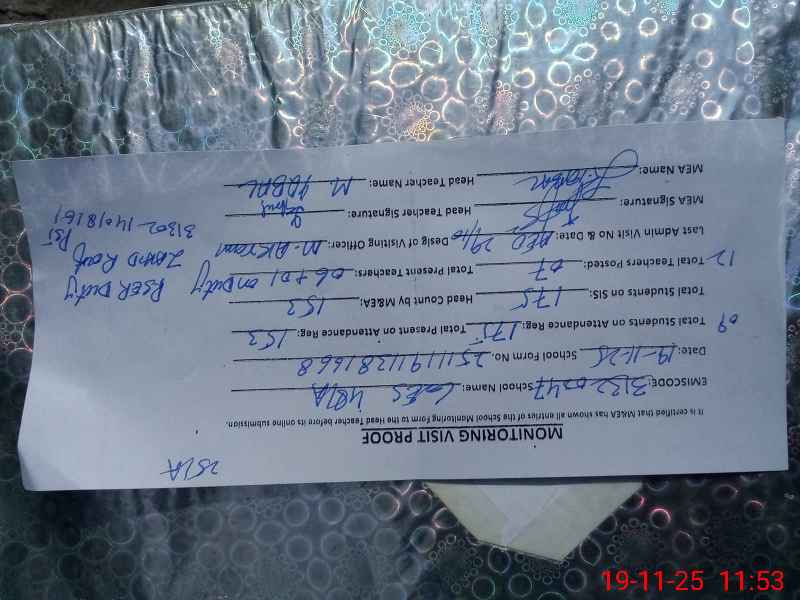 251A
MONITORING VISIT PROOF
It is certified that M&EA has shown all entries of the School Monitoring Form to the Head Teacher before its online submission.
EMISCODE: School Name:
Date: 19-11-25 School Form No. 25111911381668
09 Total Students on Attendance Reg: 175 Total Present on Attendance Reg: 153
Total Students on SIS: 175 Head Count by M&EA: 153
12 Total Teachers Posted: 07 Total Present Teachers: 06+01 on Duty
PSER Duty
Last Admin Visit No & Date: 29/10 Desig of Visiting Officer: M. AKRAM
ZAHID Rauf
PST
MEA Signature: Head Teacher Signature:
31302-1401816-1
MEA Name: Head Teacher Name: M IQBAL
19-11-25 11:53